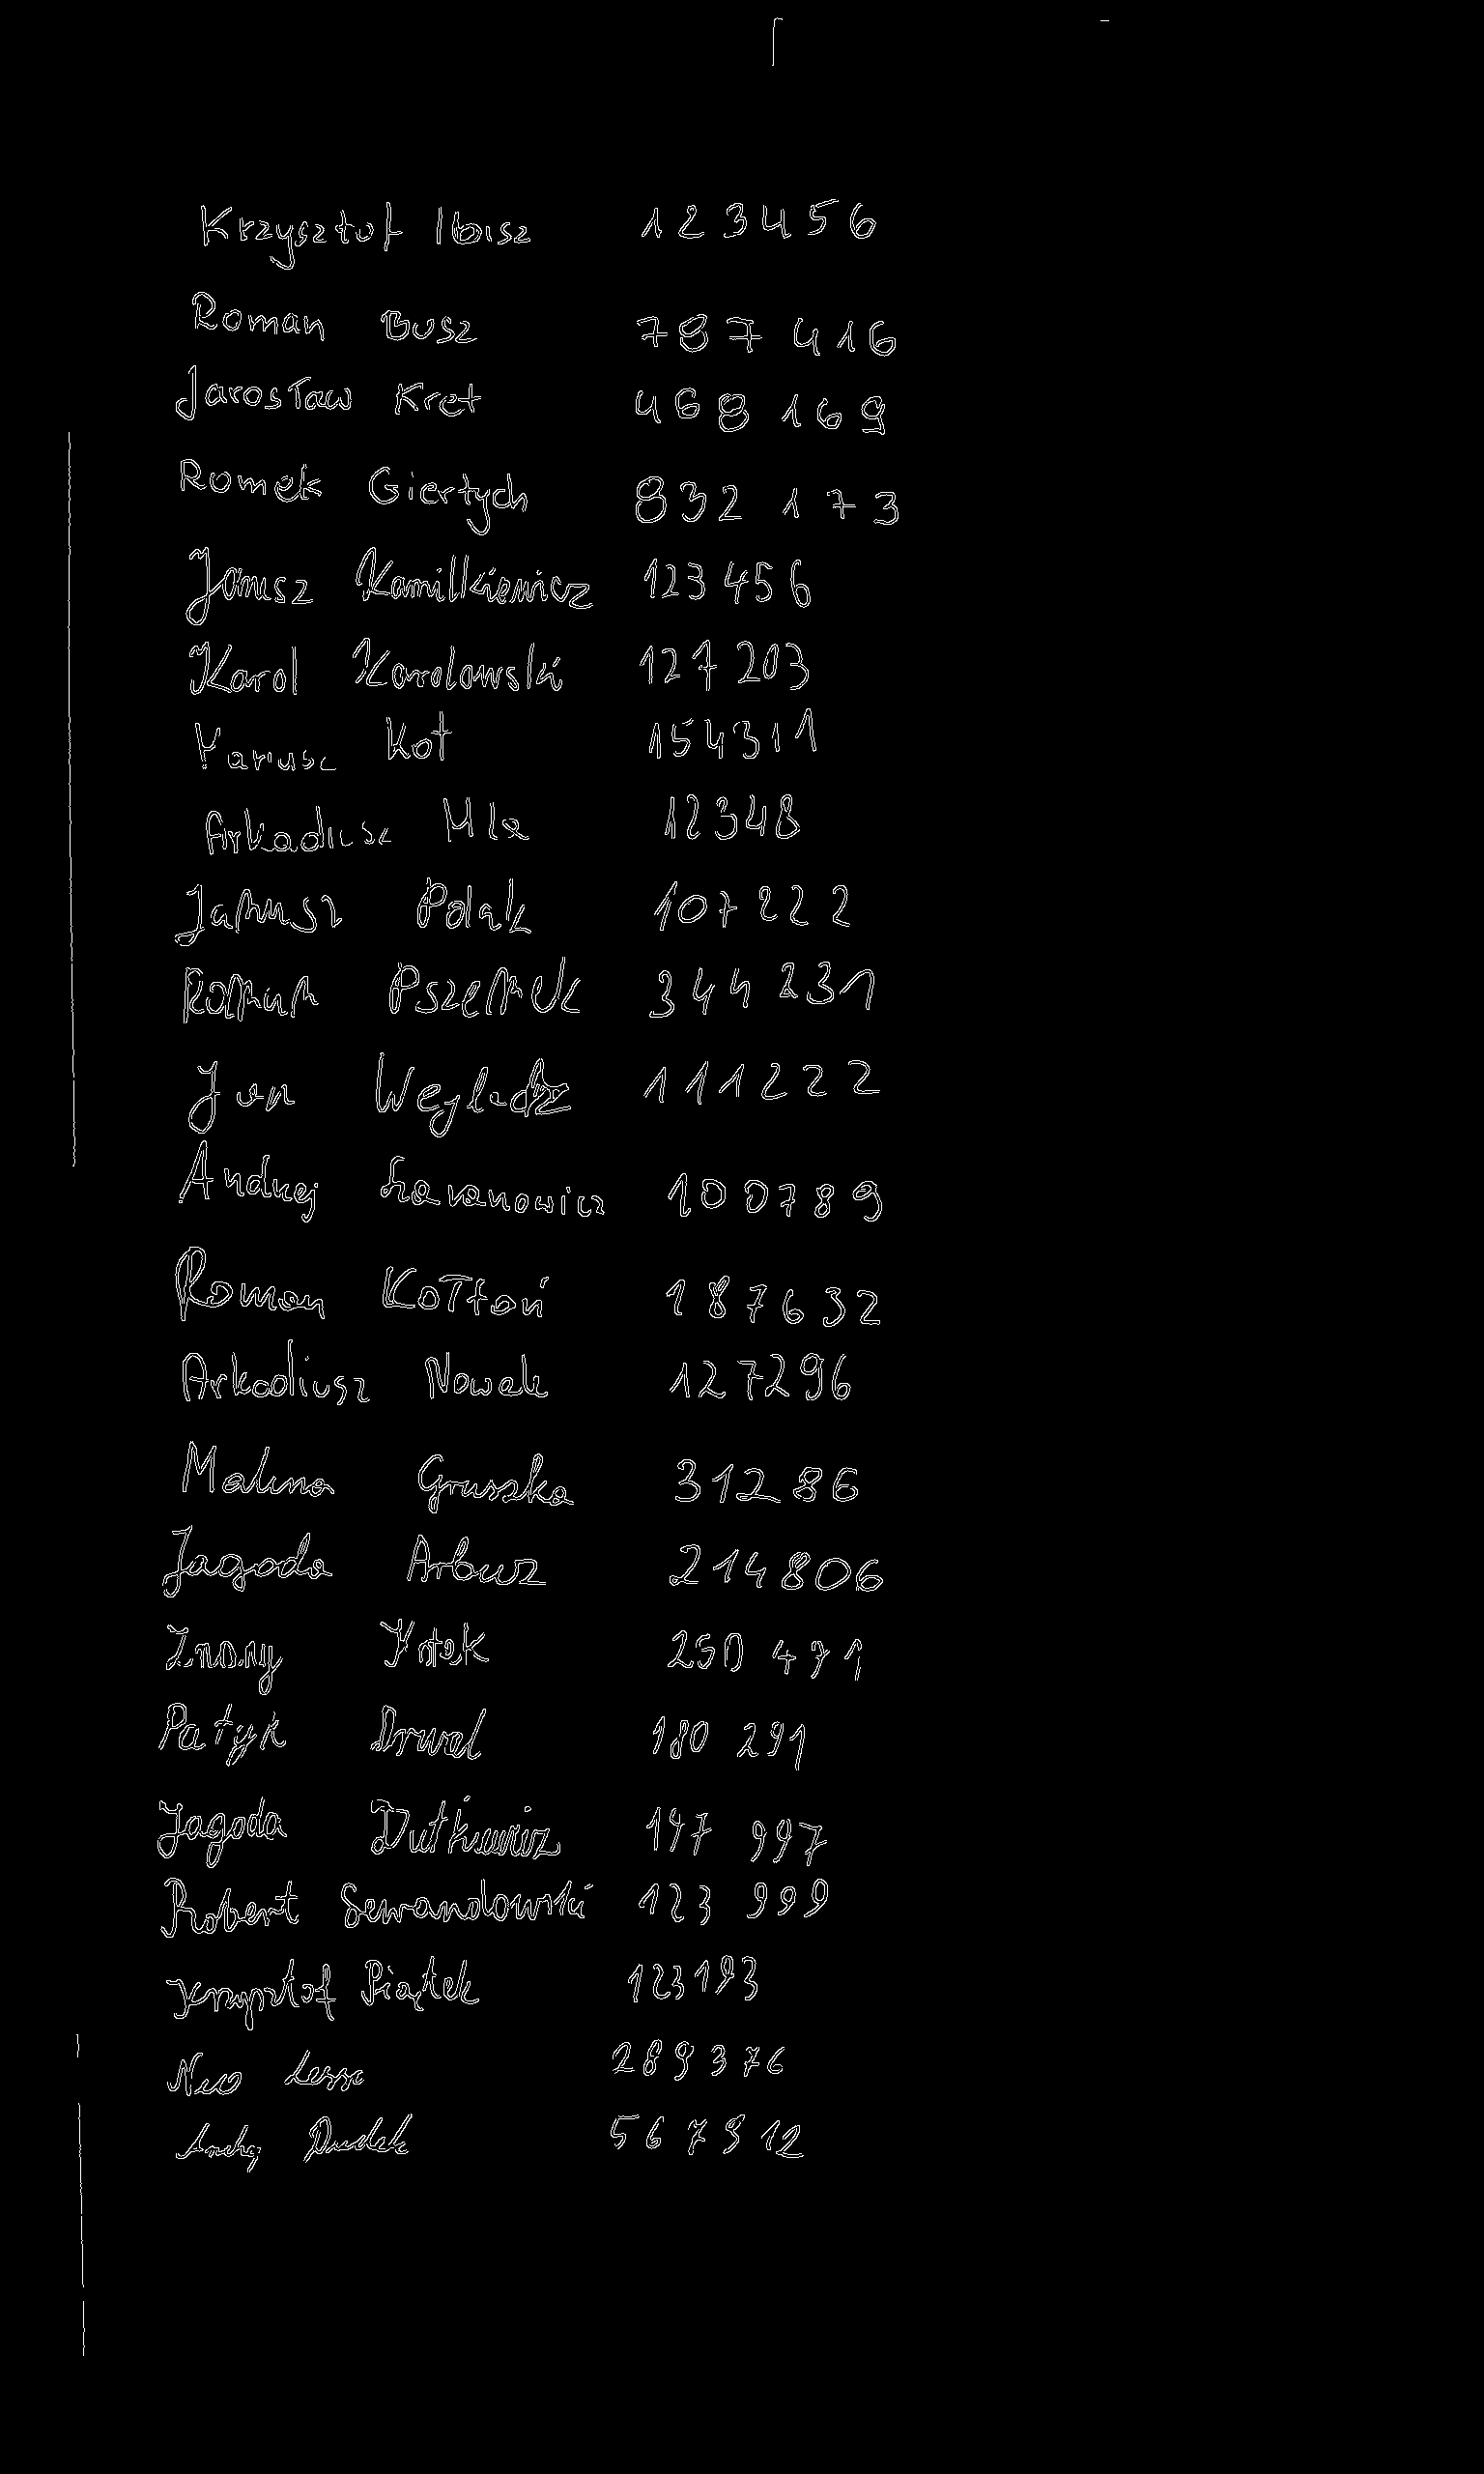 Krzysztof Ibisz 123456
Roman Busz 787416
Jarosław Kret 468169
Romek Giertych 832173
Janusz Kamilkiewicz 123456
Karol Karolowski 127203
Mariusz Kot 154311
Arkadiusz 12348
Janusz Polak 107222
Roman Pszemek 344231
Jan 111222
Andrzej Szaranowicz 100789
Roman Kołtoń 187632
Arkadiusz Nowak 127296
Malina Gruszka 312 86
Jagoda Arbuz 214806
250 471
Patyk Drwal 180 291
Jagoda Dutkiewicz 147 997
Robert Lewandowski 123 999
Krzysztof Piątek 123193
289376
Dudek 567912